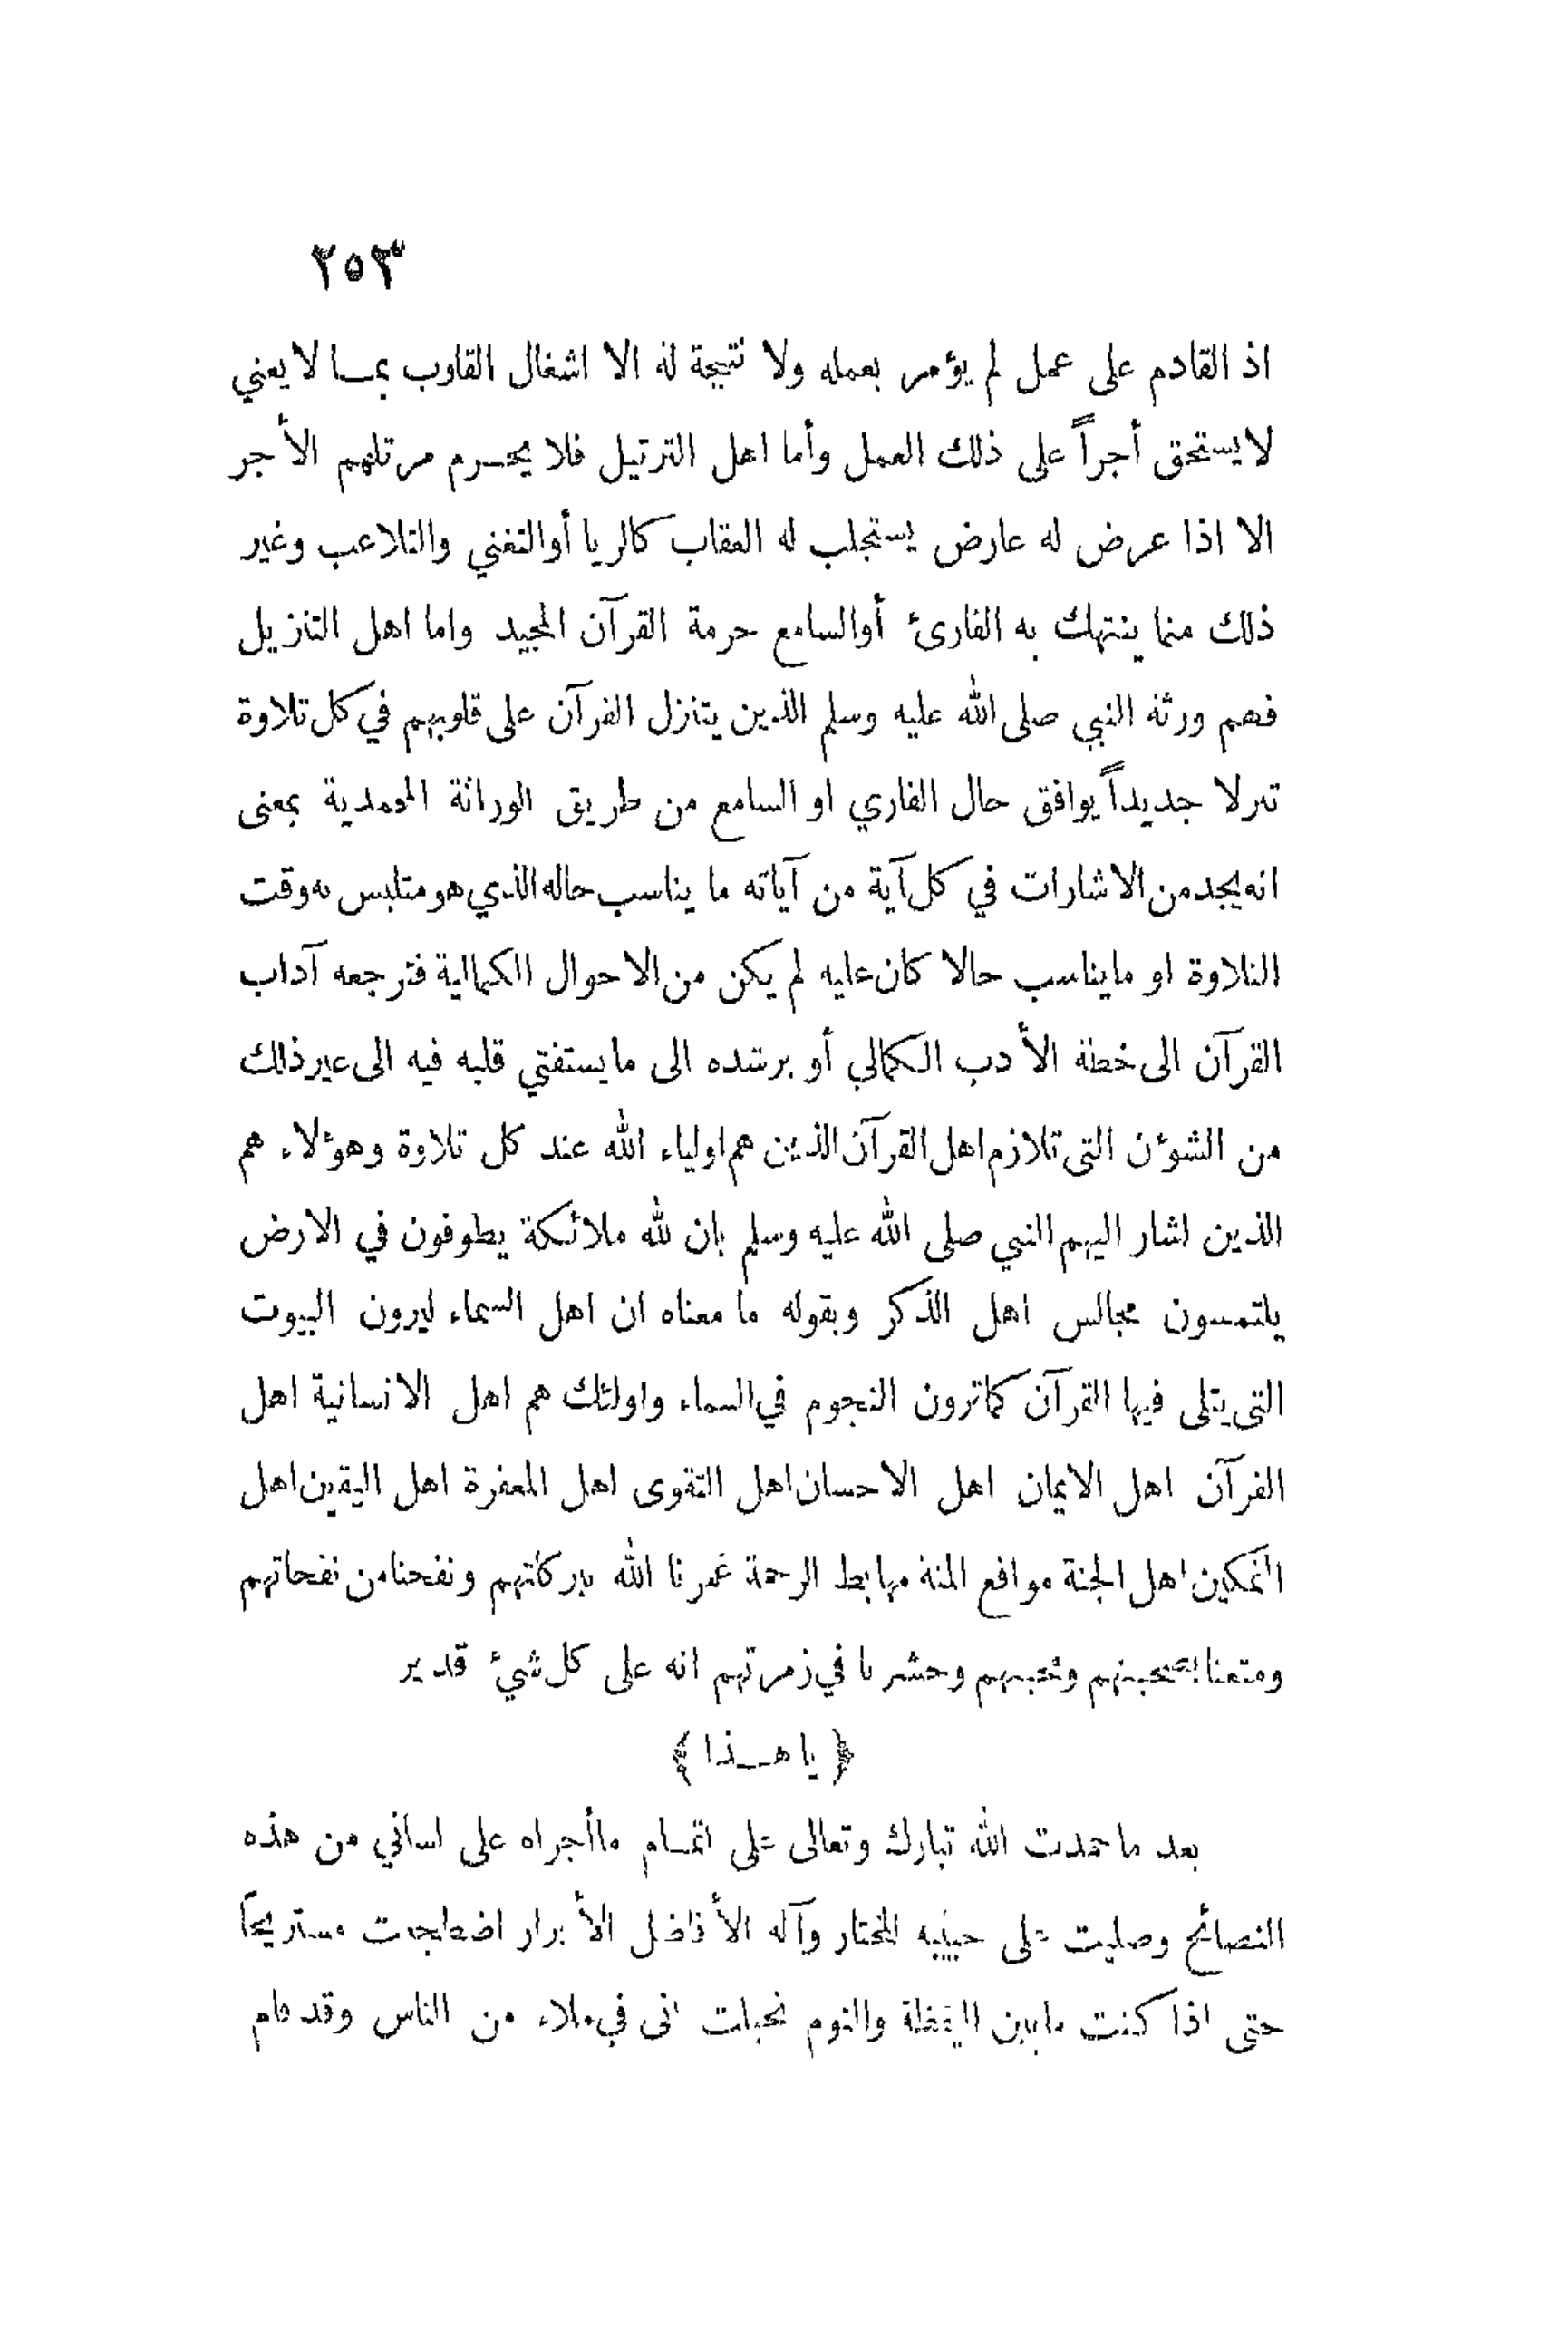 ٢٥٣
اذ القادم على عمل لم يؤمر بعمله ولا نتيجة له الا اشغال القلوب بمـا لا يعني
لا يستحق أجراً على ذلك العمل وأما اهل الترتيل فلا يحـرم مرتلهم الأجر
الا اذا عرض له عارض يستجلب له العقاب كالريا أو التغني والتلاعب وغير
ذلك مما ينتهك به القارئ أو السامع حرمة القرآن المجيد واما اهل التنزيل
فهم ورثة النبي صلى الله عليه وسلم الذين يتنزل القرآن على قلوبهم في كل تلاوة
تنزلا جديداً يوافق حال القاري او السامع من طريق الوراثة المحمدية بمعنى
انه يجد من الاشارات في كل آية من آياته ما يناسب حاله الذي هو متلبس به وقت
التلاوة او ما يناسب حالا كان عليه لم يكن من الاحوال الكمالية فترجعه آداب
القرآن الى خطة الأدب الكمالي أو يرشده الى ما يستفتي قلبه فيه الى غير ذلك
من الشؤن التى تلازم اهل القرآن الذين هم اولياء الله عند كل تلاوة وهؤلاء هم
الذين اشار اليهم النبي صلى الله عليه وسلم بان لله ملائكة يطوفون في الارض
يلتمسون مجالس اهل الذكر وبقوله ما معناه ان اهل السماء ليرون البيوت
التى يتلى فيها القرآن كما ترون النجوم في السماء واولئك هم اهل الانسانية اهل
القرآن اهل الايمان اهل الاحسان اهل التقوى اهل المغفرة اهل اليقين اهل
التمكين اهل الجنة مواقع المنة مهابط الرحمة غمرنا الله ببركاتهم ونفحنا من نفحاتهم
ومتعنا بصحبتهم ومحبتهم وحشرنا في زمرتهم انه على كل شيئ قدير
﴿ يا هـذا ﴾
بعد ما حمدت الله تبارك وتعالى على اتمـام ما أجراه على لساني من هذه
النصائح وصليت على حبيبه المختار وآله الأفاضل الأبرار اضطجعت مستريحاً
حتى اذا كنت ما بين اليقظة والنوم تخيلت انى في ملاء من الناس وقد قام